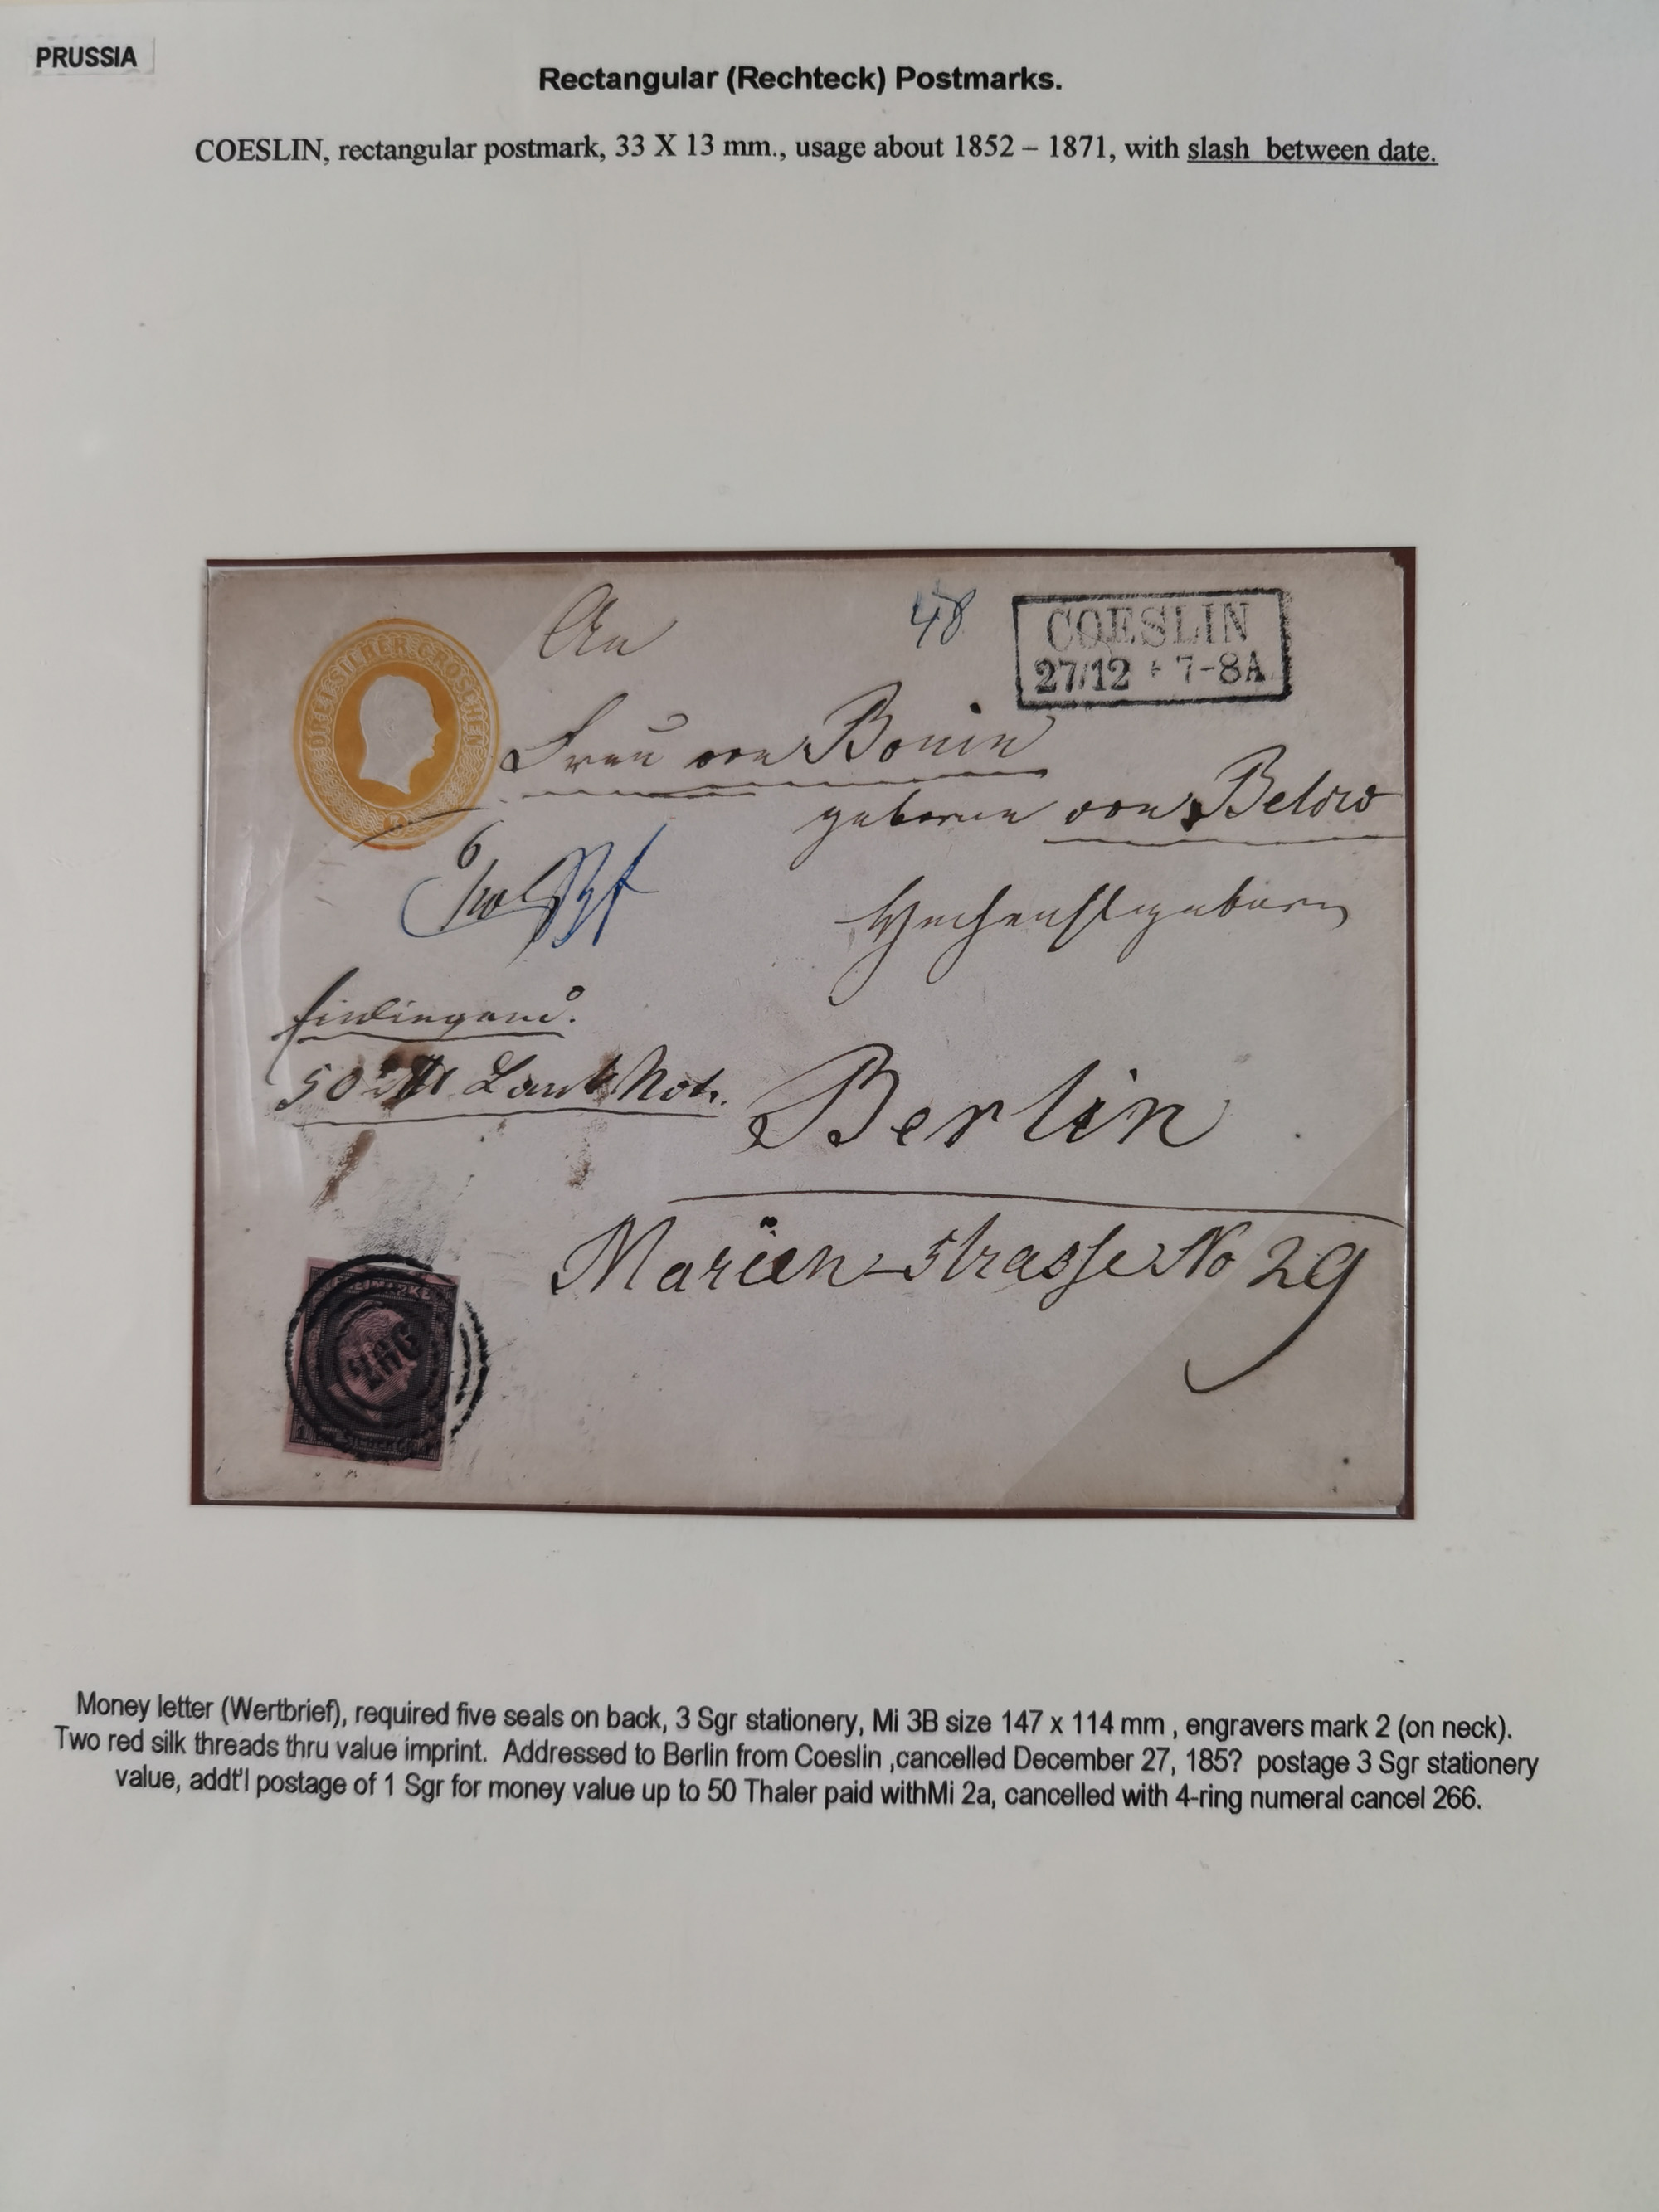 PRUSSIA
Rectangular (Rechteck) Postmarks.
COESLIN, rectangular postmark, 33 X 13 mm., usage about 1852 – 1871, with slash between date.
DREI SILBER GROSCHEN
An
48
COESLIN
27/12 * 7-8A
Frau von Bonin
geboren von Below
6
Hochwohlgeboren
einliegend.
50
Berlin
Marien-strasse No 29
266
Money letter (Wertbrief), required five seals on back, 3 Sgr stationery, Mi 3B size 147 x 114 mm , engravers mark 2 (on neck).
Two red silk threads thru value imprint. Addressed to Berlin from Coeslin ,cancelled December 27, 185? postage 3 Sgr stationery
value, addt'l postage of 1 Sgr for money value up to 50 Thaler paid withMi 2a, cancelled with 4-ring numeral cancel 266.